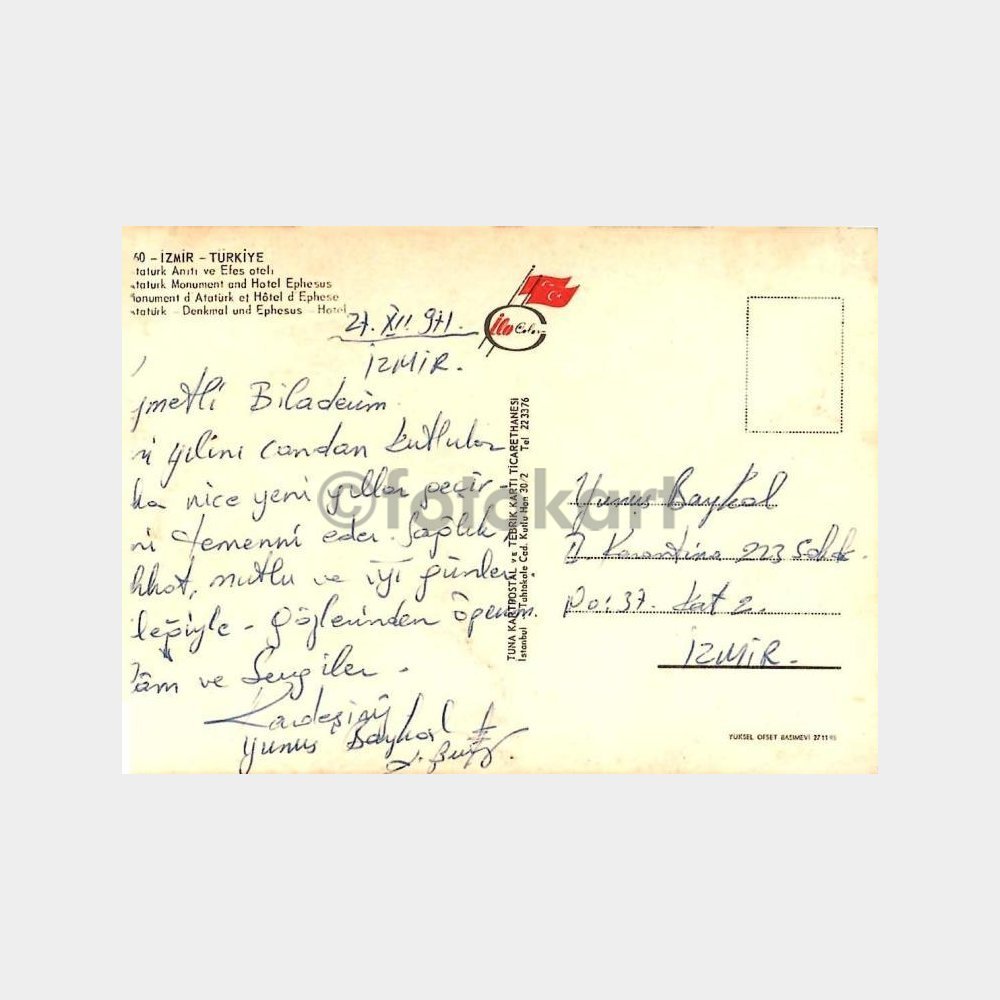 60 - İZMİR - TÜRKİYE
tatürk Anıtı ve Efes oteli
tatürk Monument and Hotel Ephesus
Monument d Atatürk et Hôtel d Ephese
tatürk - Denkmal und Ephesus - Hotel
27. XII. 971.
İZMİR.
ymetli Biladerim
ni yılını candan kutlular
ha nice yeni yıllar geçir -
ni temenni eder. Sağlık,
hhat, mutlu ve iyi günler
leğiyle - gözlerinden öperim.
lâm ve Sevgiler -
Kardeşiniz
Yunus Baykal
İlo Color
TUNA KARTPOSTAL ve TEBRİK KARTI TİCARETHANESİ
İstanbul Tahtakale Cad. Kutlu Han 30/2 Tel 223376
Yunus Baykal
Karantina 223 Sok.
No: 37. Kat 2.
İZMİR.
YÜKSEL OFSET BASIMEVİ 27 11
©fotokart